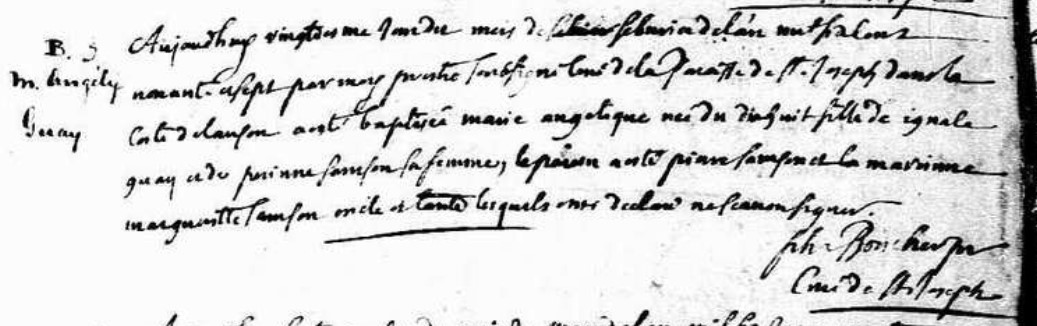 B. 5
M. Angeliq
Guay
Aujourdhuy vingtiesme Jour du mois de febvrier de lan mil six cent
nonante et sept par moy prestre soubsigné Curé de la Paroisse de St. Joseph dans la
Coste de lauson a esté baptisée marie angelique née du dixhuit fille de ignace
guay et de perinne samson sa femme, le parain a esté pierre samson et la marainne
margueritte samson oncle et tante lesquels ont declaré ne scavoir signer.
ph. Boucher ptr
Curé de St Joseph